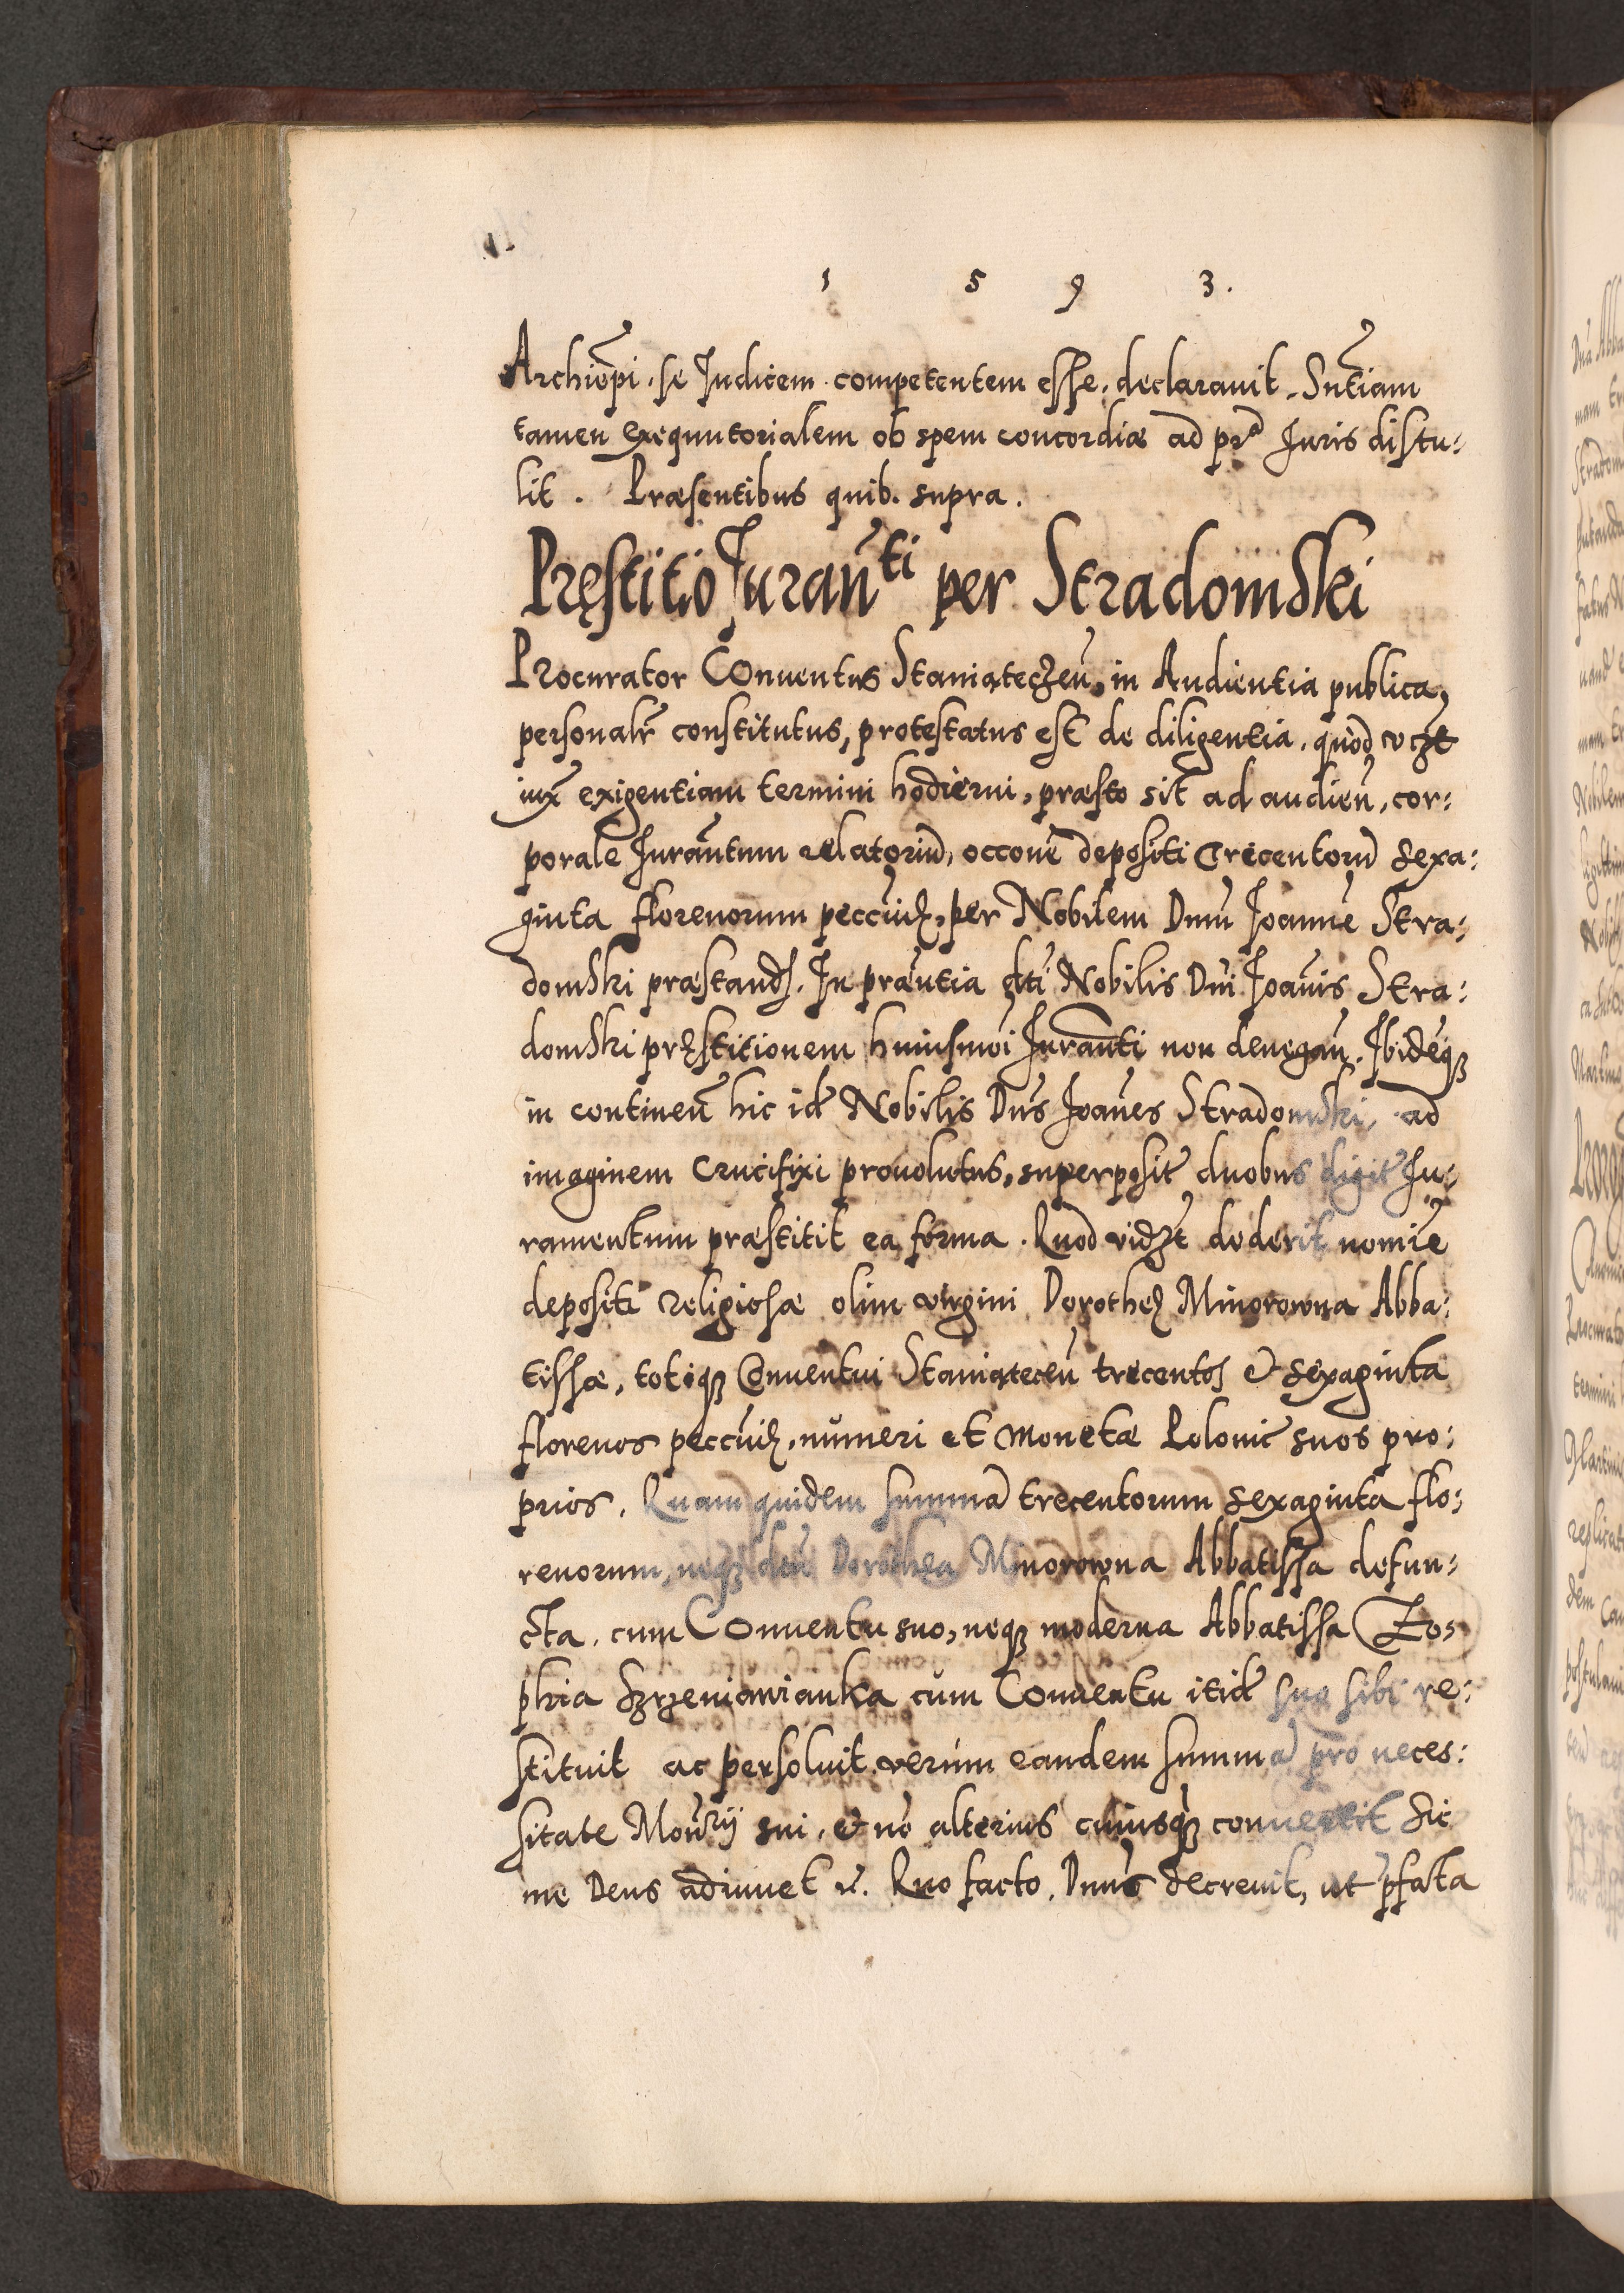 1 5 9 3.
Archiēpi. se Judicem competentem esse. declarauit. Sn̄tiam
tamen exequutorialem ob spem concordiæ ad pr̄ Juris distu:
lit. Præsentibus quib. supra.
Pręstitio Juran̄ti per Stradomski
Procurator Conuentus Staniątęczen̄, in Audientia publica,
personalr̄ constitutus, protestatus est de diligentia. quod
iux̄ exigentiam termini hodierni, præsto sit ad audien̄, cor:
porale Juran̄tum relatoriū, occone depositi trecentorū sexa:
ginta florenorum peccun̄, per Nobilem Dnū Joannē Stra:
domski præstand. In præn̄tia dti Nobilis Dn̄i Joan̄is Stra:
domski pręstitionem huiusmōi Juran̄ti non denegan̄. Ibidēq₃
in continen̄ hic idē Nobilis Dn̄s Joan̄es Stradomski, ad
imaginem Crucifixi prouolutus, superposit̄ duobus digit̄ Ju:
ramentum præstitit ea forma. Quod vidzt dederit nomīe
depositi religiosæ olim virgini Dorotheę Minorowna Abba:
tissæ, totiq₃ Conuentui Staniąteceń trecentos et sexaginta
florenos peccun̄, numeri et monetæ Polonic̄ suos pro:
prios. Quam quidem summā trecentorum sexaginta flo:
renorum, neq₃ dcū Dorothea Minorowna Abbatissa defun:
cta. cum Conuentu suo, neq₃ moderna Abbatissa Zo:
phia Szrzeniawianka cum Conuentu itidē suo sibi re:
stituit ac persoluit. verùm eandem summā pro neces:
sitate Mon̄rij sui. et nō alterius cuiusq₃ conuertit Sic
me Deus adiuuet etc. Quo facto. Dnūs decreuit, ut pfata